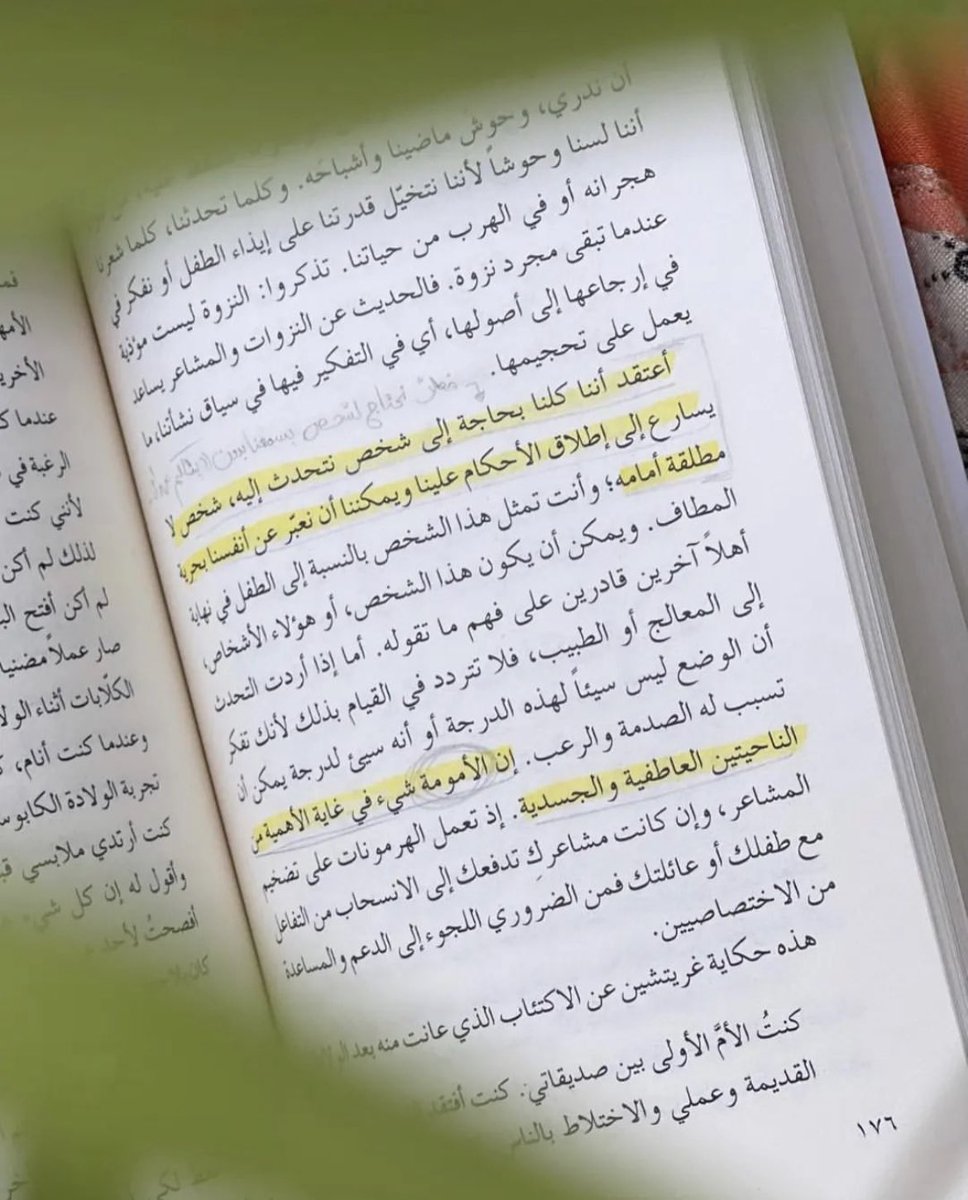 أن ندري، وحوش ماضينا وأشباحَه. وكلما تحدثنا، كلما شعرنا
أننا لسنا وحوشاً لأننا نتخيّل قدرتنا على إيذاء الطفل أو نفكر في
هجرانه أو في الهرب من حياتنا. تذكروا: النزوة ليست مؤذية
عندما تبقى مجرد نزوة. فالحديث عن النزوات والمشاعر يساعد
في إرجاعها إلى أصولها، أي في التفكير فيها في سياق نشأتنا، ما
يعمل على تحجيمها.
أعتقد أننا كلنا بحاجة إلى شخص نتحدث إليه، شخص لا
يسارع إلى إطلاق الأحكام علينا ويمكننا أن نعبّر عن أنفسنا بحرية
مطلقة أمامه؛ وأنت تمثل هذا الشخص بالنسبة إلى الطفل في نهاية
المطاف. ويمكن أن يكون هذا الشخص، أو هؤلاء الأشخاص،
أهلاً آخرين قادرين على فهم ما تقوله. أما إذا أردت التحدث
إلى المعالج أو الطبيب، فلا تتردد في القيام بذلك لأنك تفكر
أن الوضع ليس سيئاً لهذه الدرجة أو أنه سيئ لدرجة يمكن أن
تسبب له الصدمة والرعب. إن الأمومة شيء في غاية الأهمية من
الناحيتين العاطفية والجسدية. إذ تعمل الهرمونات على تضخيم
المشاعر، وإن كانت مشاعركِ تدفعك إلى الانسحاب من التفاعل
مع طفلك أو عائلتك فمن الضروري اللجوء إلى الدعم والمساعدة
من الاختصاصيين.
هذه حكاية غريتشين عن الاكتئاب الذي عانت منه بعد
كنتُ الأمَّ الأولى بين صديقاتي. كنت أفتقد
القديمة وعملي والاختلاط
١٧٦
الأخرى
عندما
الرغبة في
لأنني كنت
لذلك لم أكن
لم أكن أفتح
صار عملاً مضنيا
الكلّابات أثناء
وعندما كنت أنام،
تجربة الولادة
كنت أرتدي ملابسي
وأقول له إن كل
أفصحتُ